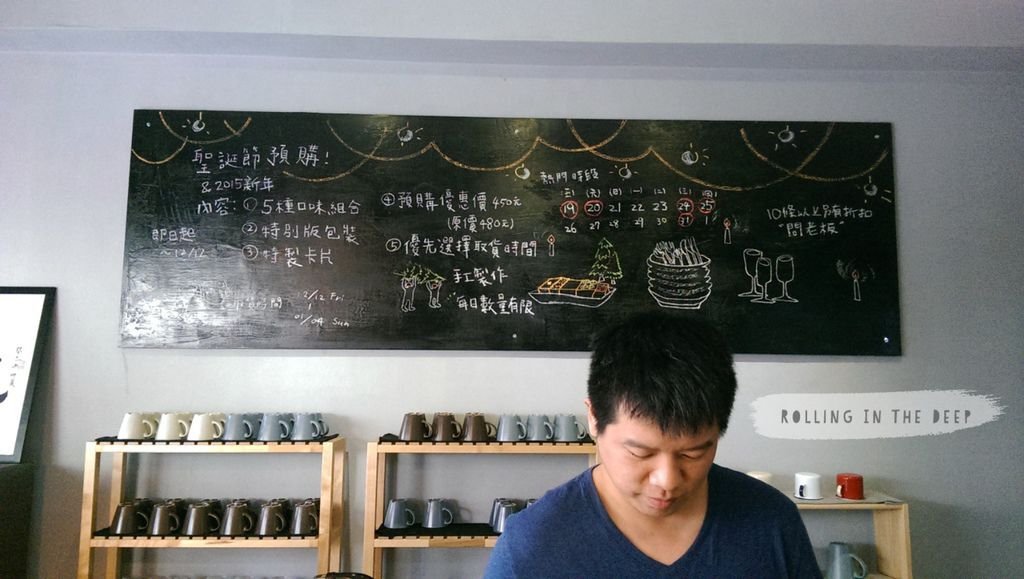 聖誕節預購!
&2015新年
內容:① 5種口味組合
② 特別版包裝
③ 特製卡片
即日起
~12/12
時間 12/12 Fri
01/04 Sun
④ 預購優惠價450元
(原價480元)
⑤ 優先選擇取貨時間
手工製作
每日數量有限
熱門時段
(五) (六) (日) (一) (二) (三) (四)
19 20 21 22 23 24 25
26 27 28 29 30 31 1
10條以上另有折扣
"問老板"
ROLLING IN THE DEEP